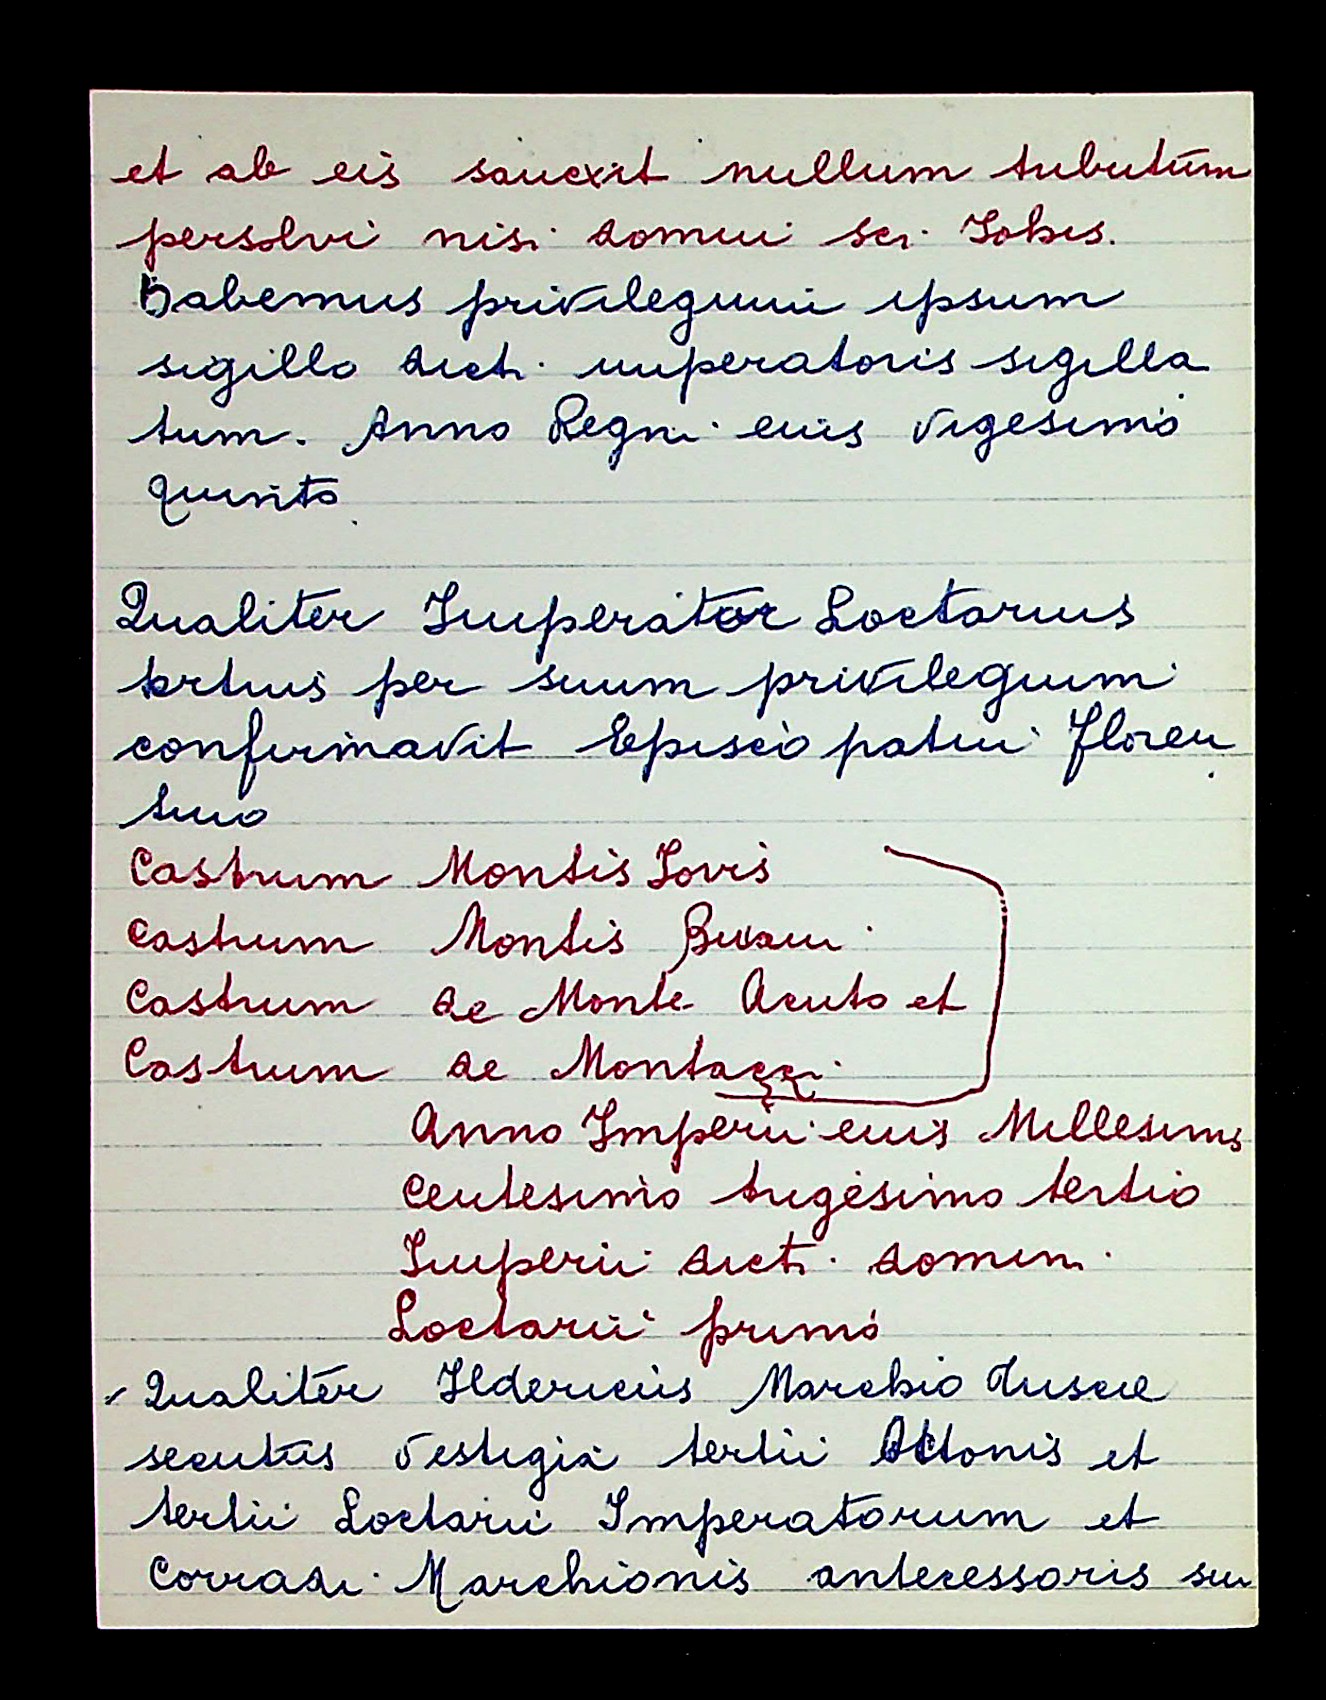 et ab eis sancxit nullum tributum
persolvi nisi domui sci Iobis.
Habemus privilegium ipsum
sigillo dicti imperatoris sigilla
tum. Anno Regni eius vigesimo
quinto
Qualiter Imperator Loctarius
tertius per suum privilegium
confirmavit Episcopatui Floren
tino
Castrum Montis Iovis
Castrum Montis Buxani
Castrum de Monte Acuto et
Castrum de Montazzi
Anno Imperii eius Millesimo
Centesimo trigesimo tertio
Imperii dicti domini
Loctarii primo
Qualiter Ildericus Marchio Tuscie
secutus vestigia tertii Ottonis et
tertii Loctarii Imperatorum et
Corradi Marchionis antecessoris sui